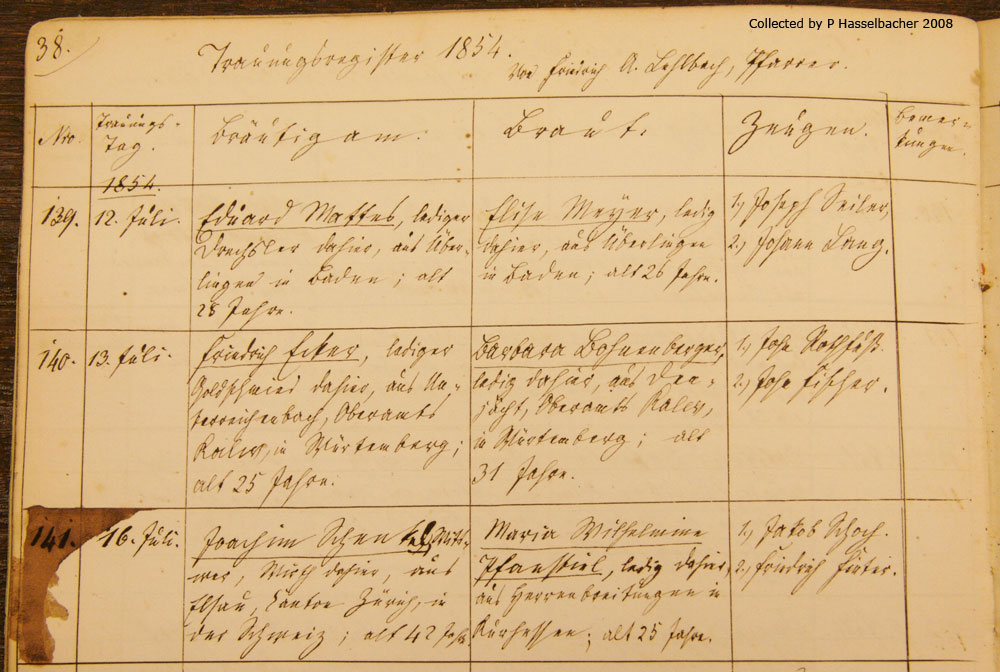 Collected by P Hasselbacher 2008
38.
Trauungsregister 1854.
Von Friedrich A. Lehlbach, Pfarrer.
Nro. Trauungs- Tag. Bräutigam. Braut. Zeugen. Bemer- kungen.
1854.
139. 12. Juli.
Eduard Mattes, lediger
Drechsler dahier, aus Über-
lingen in Baden; alt
25 Jahre.
Elise Meyer, ledig
dahier, aus Überlingen
in Baden; alt 26 Jahre.
1., Joseph Seiler,
2., Johann Lang.
140. 13. Juli.
Friedrich Ecker, lediger
Goldschmied dahier, aus Un-
terreichenbach, Oberamts
Kalw, in Würtemberg;
alt 25 Jahre.
Barbara Bohnenberger,
ledig dahier, aus Den-
jächt, Oberamts Kalw,
in Würtemberg; alt
31 Jahre.
1., Joh. Rothfuß.
2., Joh. Fischer.
141. 16. Juli.
Joachim Schenkel, Witt-
wer, Wirth dahier, aus
Elsau, Canton Zürich, in
der Schweiz; alt 42 Jahre.
Maria Wilhelmine
Pfanstiel, ledig dahier,
aus Herrenbreitungen in
Kurhessen; alt 25 Jahre.
1., Jakob Schoch.
2., Friedrich